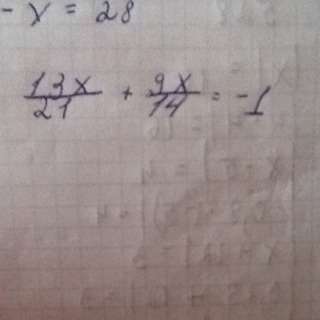 - x = 28
13x/21 + 9x/14 = -1